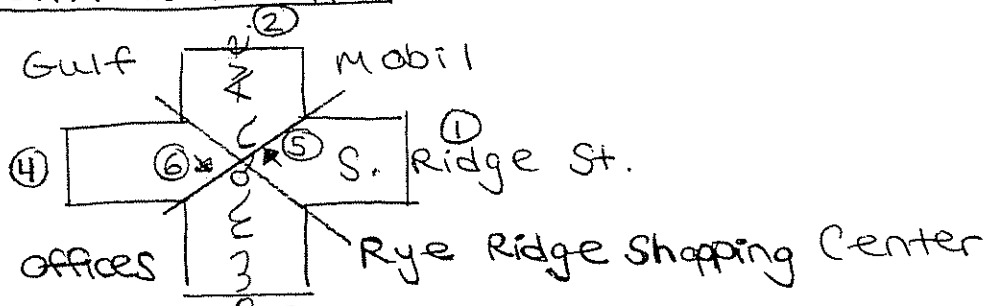 ②
Gulf
Mobil
④
⑥
⑤
①
S. Ridge St.
offices
Rye Ridge Shopping Center